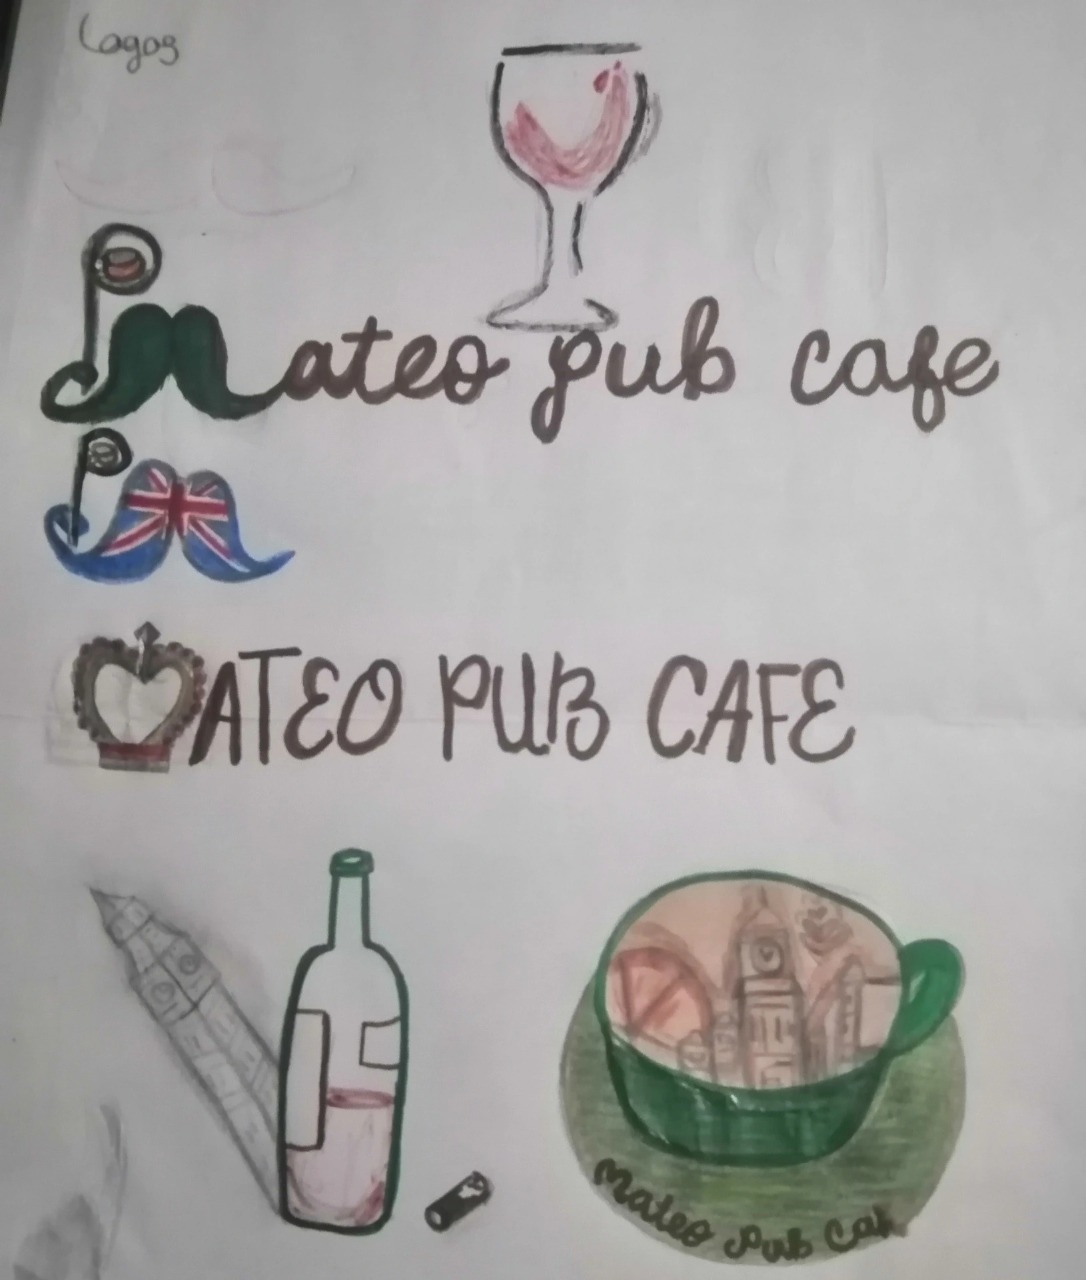 Logos
Mateo pub cafe
M
MATEO PUB CAFE
Mateo Pub Caf